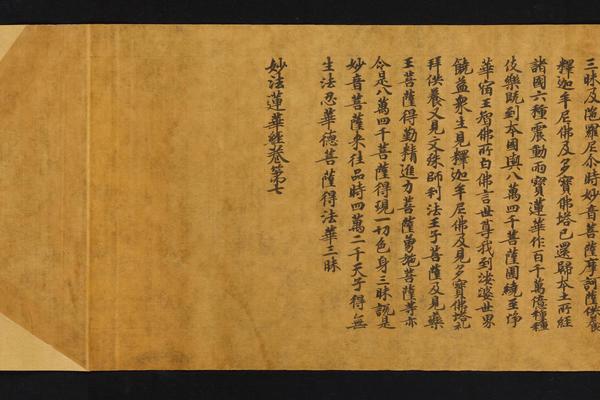 三昧及陁羅尼尒時妙音菩薩摩訶薩供養
釋迦牟尼佛及多寶佛塔已還歸本土所經
諸國六種震動雨寶蓮華作百千萬億種種
伎樂既到本國與八萬四千菩薩圍繞至淨
華宿王智佛所白佛言世尊我到娑婆世界
饒益衆生見釋迦牟尼佛及見多寶佛塔礼
拜供養又見文殊師利法王子菩薩及見藥
王菩薩得勤精進力菩薩勇施菩薩等亦
令是八萬四千菩薩得現一切色身三昧說是
妙音菩薩来往品時四萬二千天子得無
生法忍華德菩薩得法華三昧
妙法蓮華經卷第七